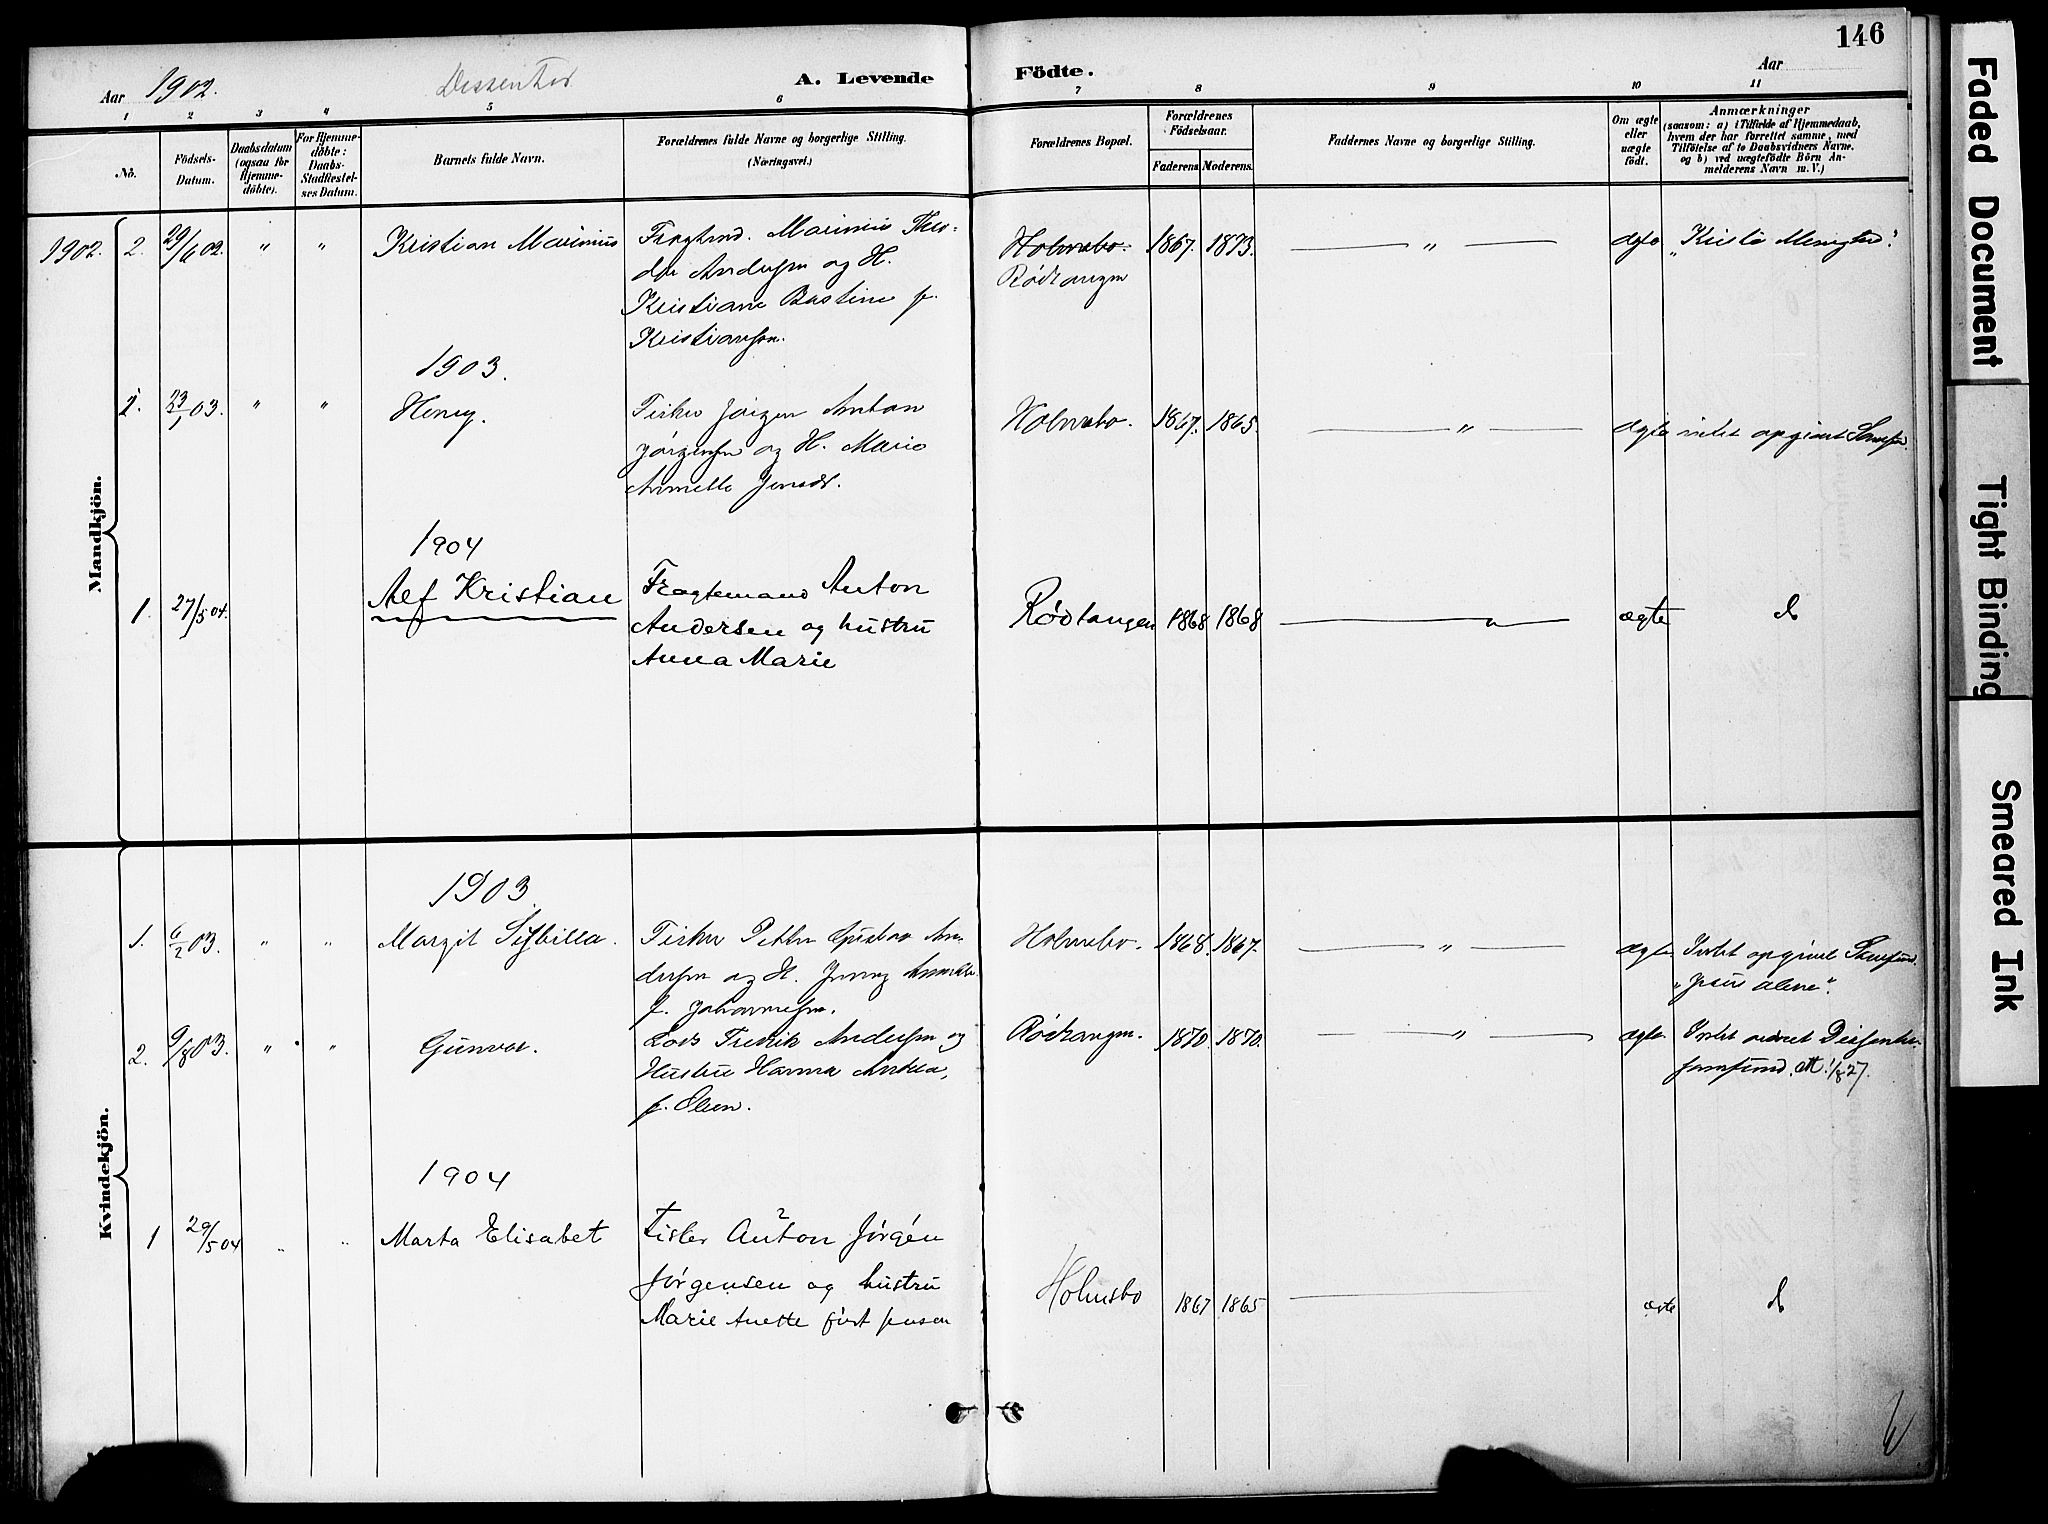 146
Aar 1902.
Dissenter
A. Levende Födte.
Aar
1 2 3 4 5 6 7 8 9 10 11
No.
Födsels-Datum.
Daabsdatum (ogsaa for Hjemmedöbte).
For Hjemmedöbte: Daabs-Stadfæstelses Datum.
Barnets fulde Navn.
Forældrenes fulde Navne og borgerlige Stilling. (Næringsvei.)
Forældrenes Bopæl.
Forældrenes Fødselsaar.
Faderens. Moderens.
Faddernes Navne og borgerlige Stilling.
Om ægte eller uægte født.
Anmærkninger
(saasom: a) i Tilfælde af Hjemmedaab, hvem der har forrettet samme, med Tilföielse af to Daabsvidners Navne. og b) ved uægtefödte Börn Anmelderens Navn m. V.)
Mandkjön.
1902. 2. 29/6 02. " " Kristian Marinius Fragtmd. Marinius Theo-
dor Andersen og H.
Kristiane Bastine f.
Kristiansen.
Holmsbo.
Rødtangen
1867. 1873. " ægte
1903.
1. 23/1 03. " " Henry. Fisker Jørgen Anton
Jørgensen og H. Marie
Annette Jensdt.
Holmsbo. 1867. 1865. " ægte intet opgivet Samfund.
1904
1. 27/5 04. Alf Kristian Fragtemand Anton
Andersen og hustru
Anna Marie
Rødtangen 1868 1868 " ægte
Kvindekjön.
1903.
1. 6/2 03. " " Margit Sifbilla. Fisker Petter Gustav An-
dersen og H. Jenny
f. Johannesen.
Holmsbo. 1868. 1867. " ægte. Intet opgivet Samfund.
"Jesus alene".
2. 9/8 03. " " Gunvor. Lods Fredrik Andersen og
Hustru Hanna Andrea,
f. Olsen.
Rødtangen. 1870. 1870. " ægte. Intet ordnet Dissenter-
samfund. 1/8 27.
1904
1 29/5 04 " " Marta Elisabet Fisker Anton Jørgen
Jørgensen og hustru
Marie Anette født Jensen
Holmsbo 1867 1865 ægte
Faded Document
Tight Binding
Smeared Ink